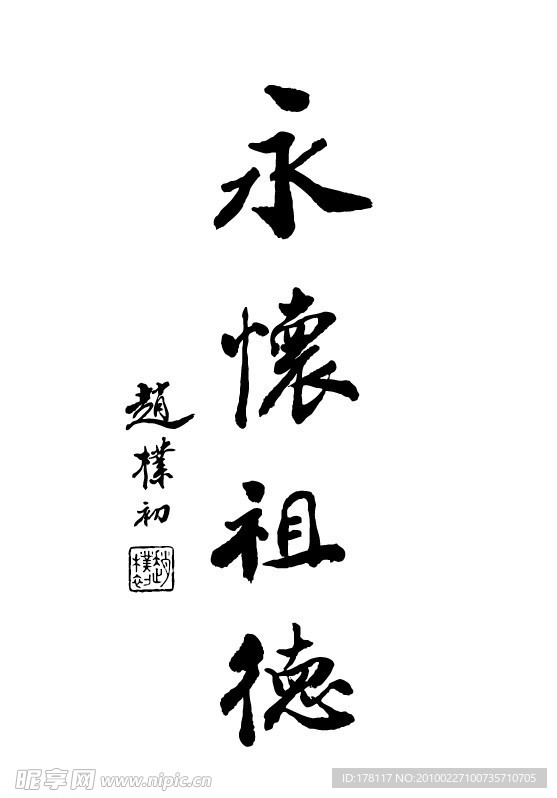 永懷祖德
趙樸初
趙樸初
昵享网 www.nipic.cn
ID:178117 NO:20100227100735710705